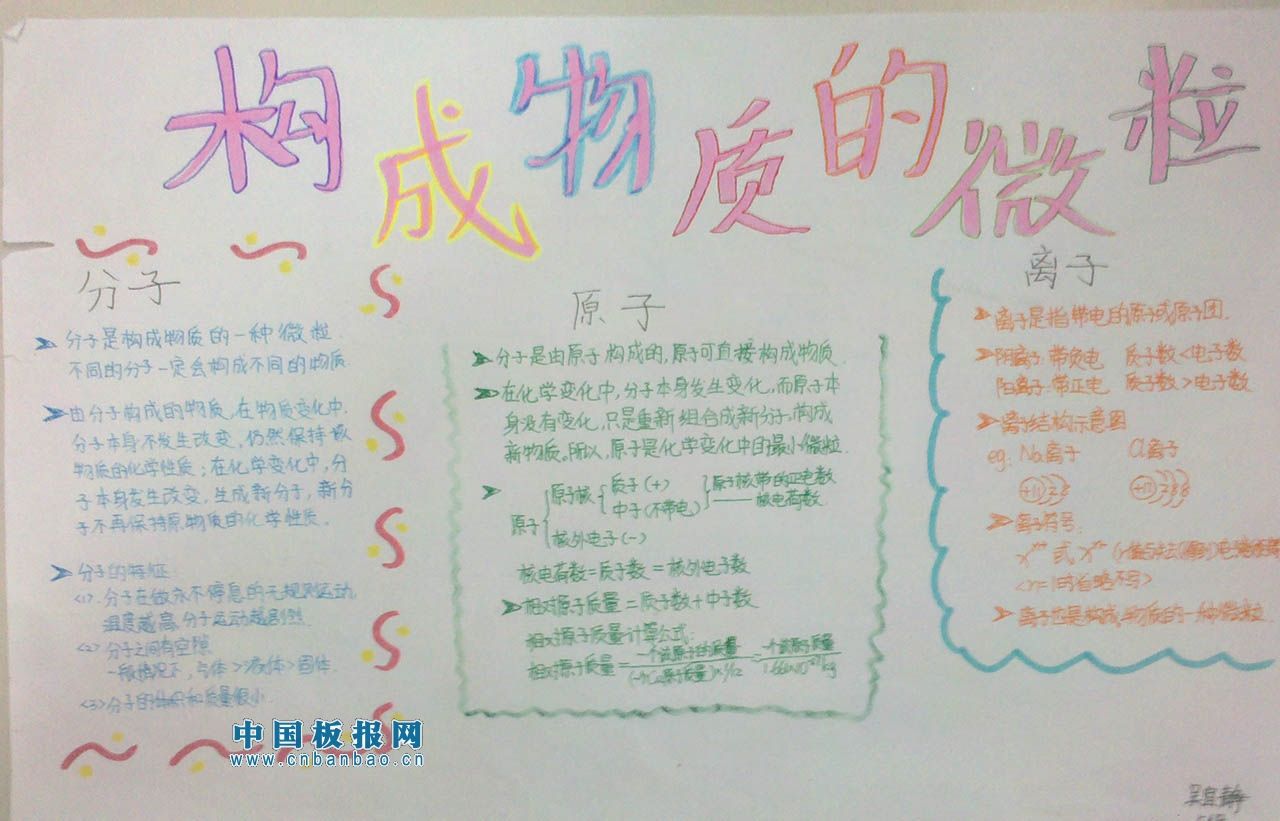 构成物质的微粒
分子
分子是构成物质的一种微粒.
不同的分子一定会构成不同的物质
由分子构成的物质,在物质变化中,
分子本身不发生改变,仍然保持
物质的化学性质;在化学变化中,分
子本身发生改变,生成新分子,新分
子不再保持原物质的化学性质。
分子的特征:
<1>.分子在做永不停息的无规则运动
温度越高,分子运动越剧烈.
<2>分子之间有空隙
一般情况下,气体>液体>固体.
<3>分子的体积和质量很小.
原子
分子是由原子构成的,原子可直接构成物质.
在化学变化中,分子本身发生变化,而原子本
身没有变化,只是重新组合成新分子,构成
新物质。所以,原子是化学变化中的最小微粒.
原子 原子核 质子(+) 原子核带的正电数
中子(不带电) 核电荷数.
核外电子(-)
核电荷数=质子数=核外电子数
相对原子质量=质子数+中子数
相对原子质量计算公式:
相对原子质量=
离子
离子是指带电的原子或原子团.
阴离子:带负电 质子数<电子数
阳离子:带正电 质子数>电子数
离子结构示意图
eg: Na离子 Cl离子
+11 2 8 +17 2 8 8
离子符号:
式
<n=1时省略不写>
离子也是构成物质的一种微粒.
中国板报网
www.cnbanbao.cn